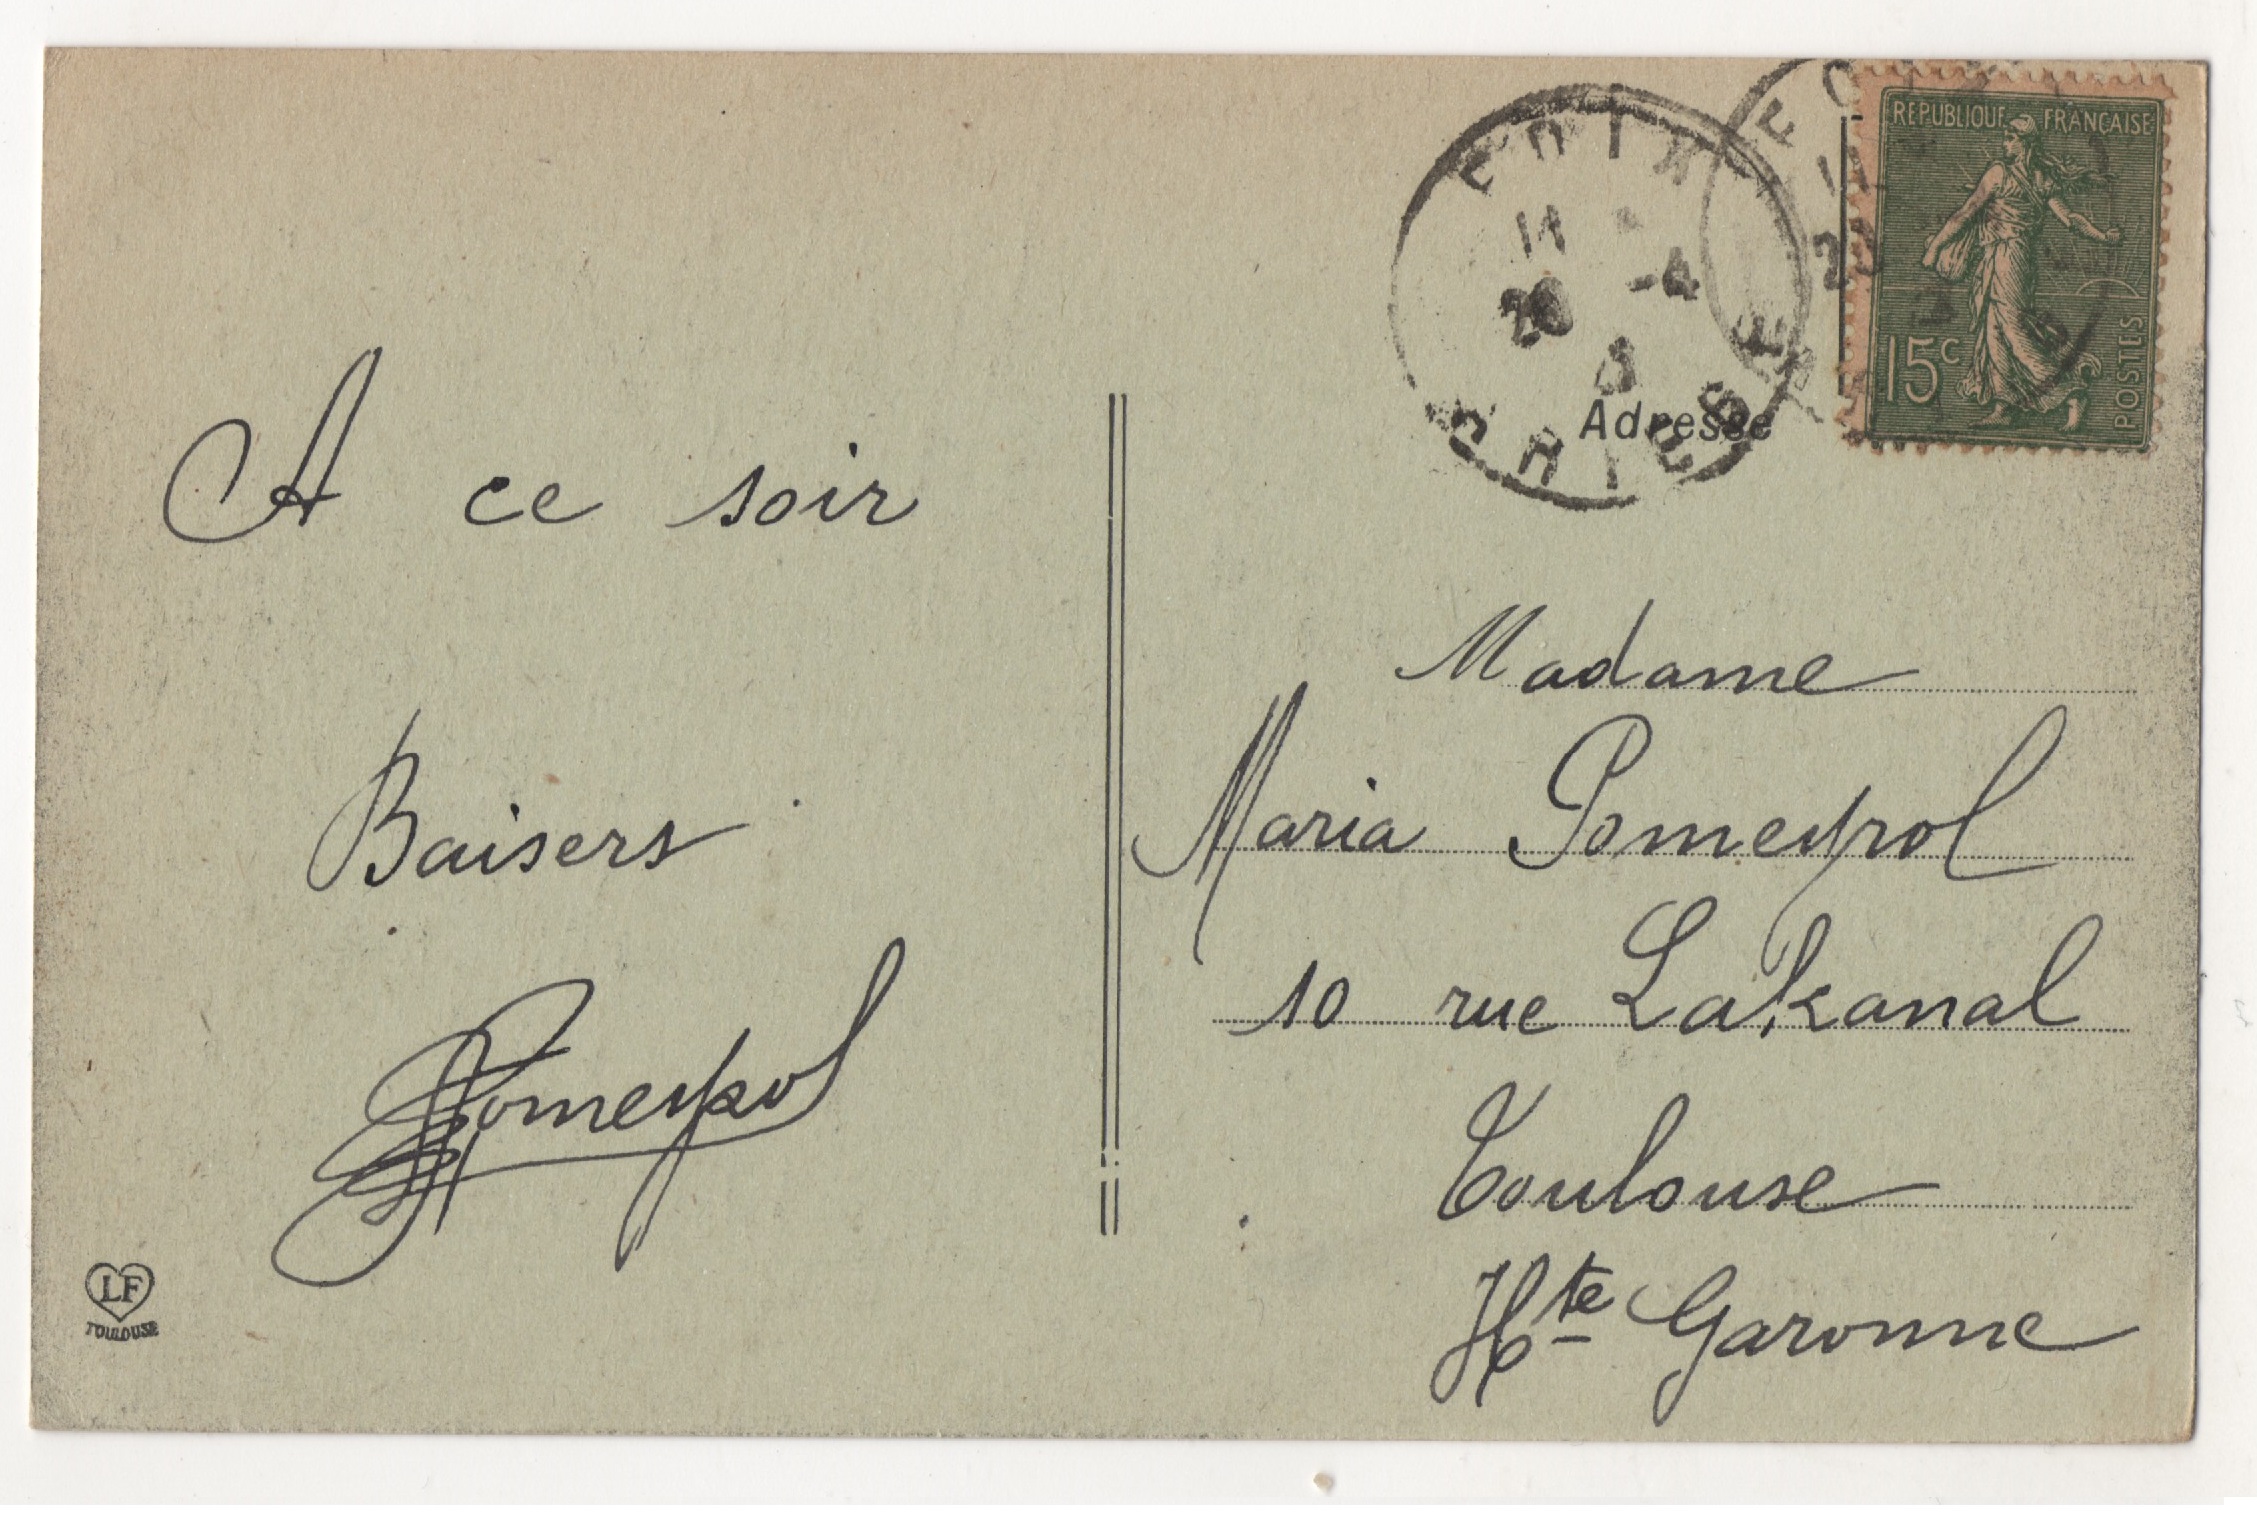 A ce soir
Baisers
Pomeyrol
LF
TOULOUSE
REPUBLIQUE FRANÇAISE
15c
POSTES
FOIX
11
20 -4
Adresse
Madame
Maria Pomeyrol
10 rue Lakanal
Toulouse
Hte Garonne